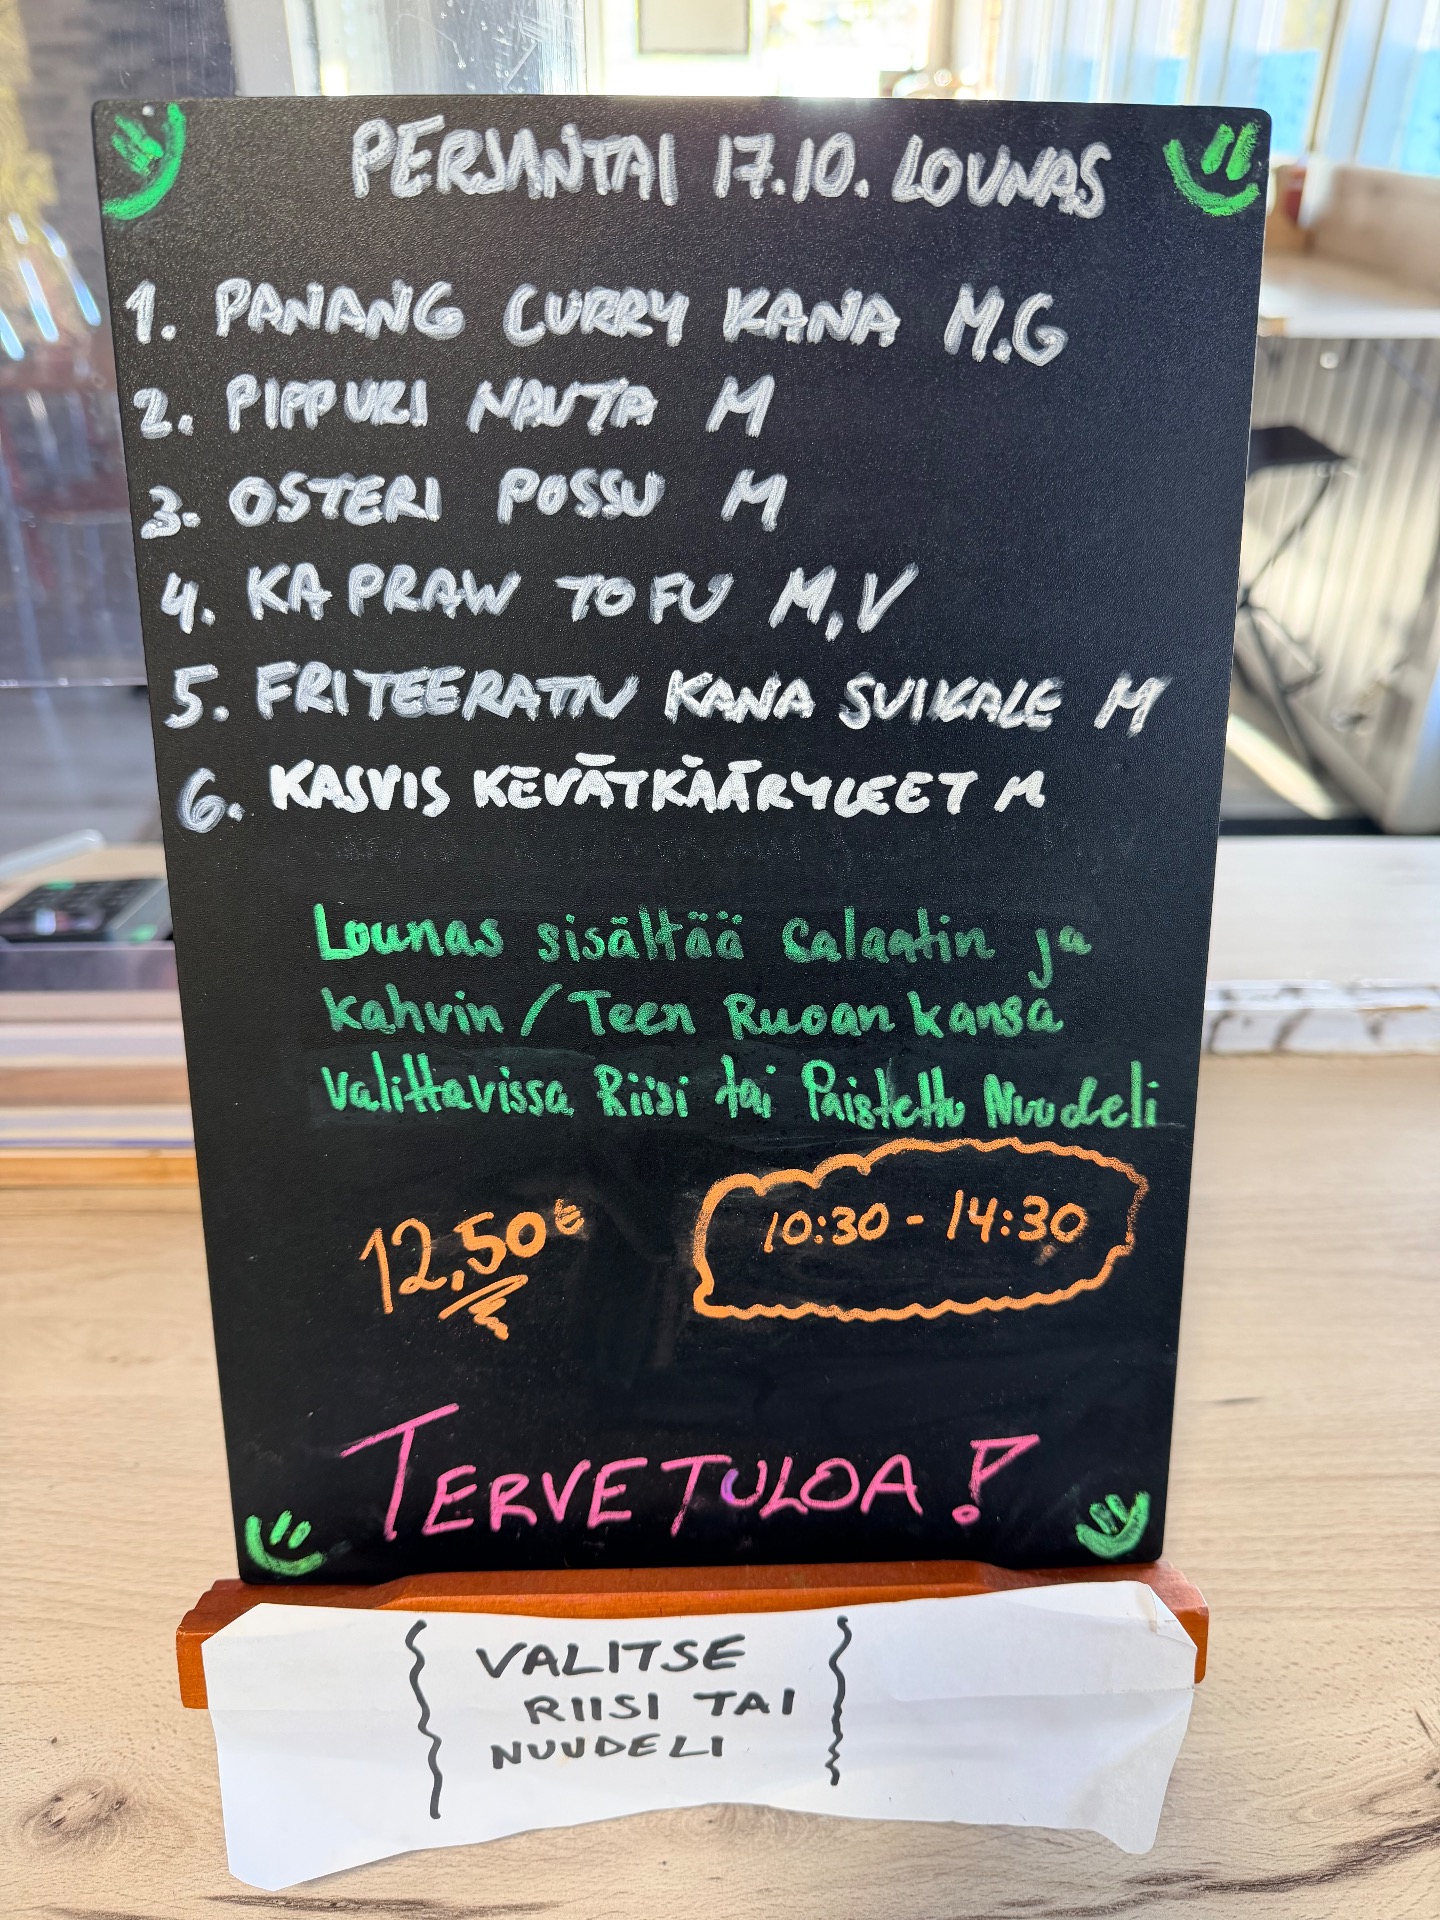 PERJANTAI 17.10. LOUNAS
1. PANANG CURRY KANA M.G
2. PIPPURI NAUTA M
3. OSTERI POSSU M
4. KA PRAW TOFU M,V
5. FRITEERATTU KANA SUIKALE M
6. KASVIS KEVÄTKÄÄRYLEET M
Lounas sisältää Salaatin ja
kahvin / Teen Ruoan kansa
Valittavissa Riisi tai Paistettu Nuudeli
12,50€
10:30 - 14:30
TERVETULOA!
VALITSE
RIISI TAI
NUUDELI